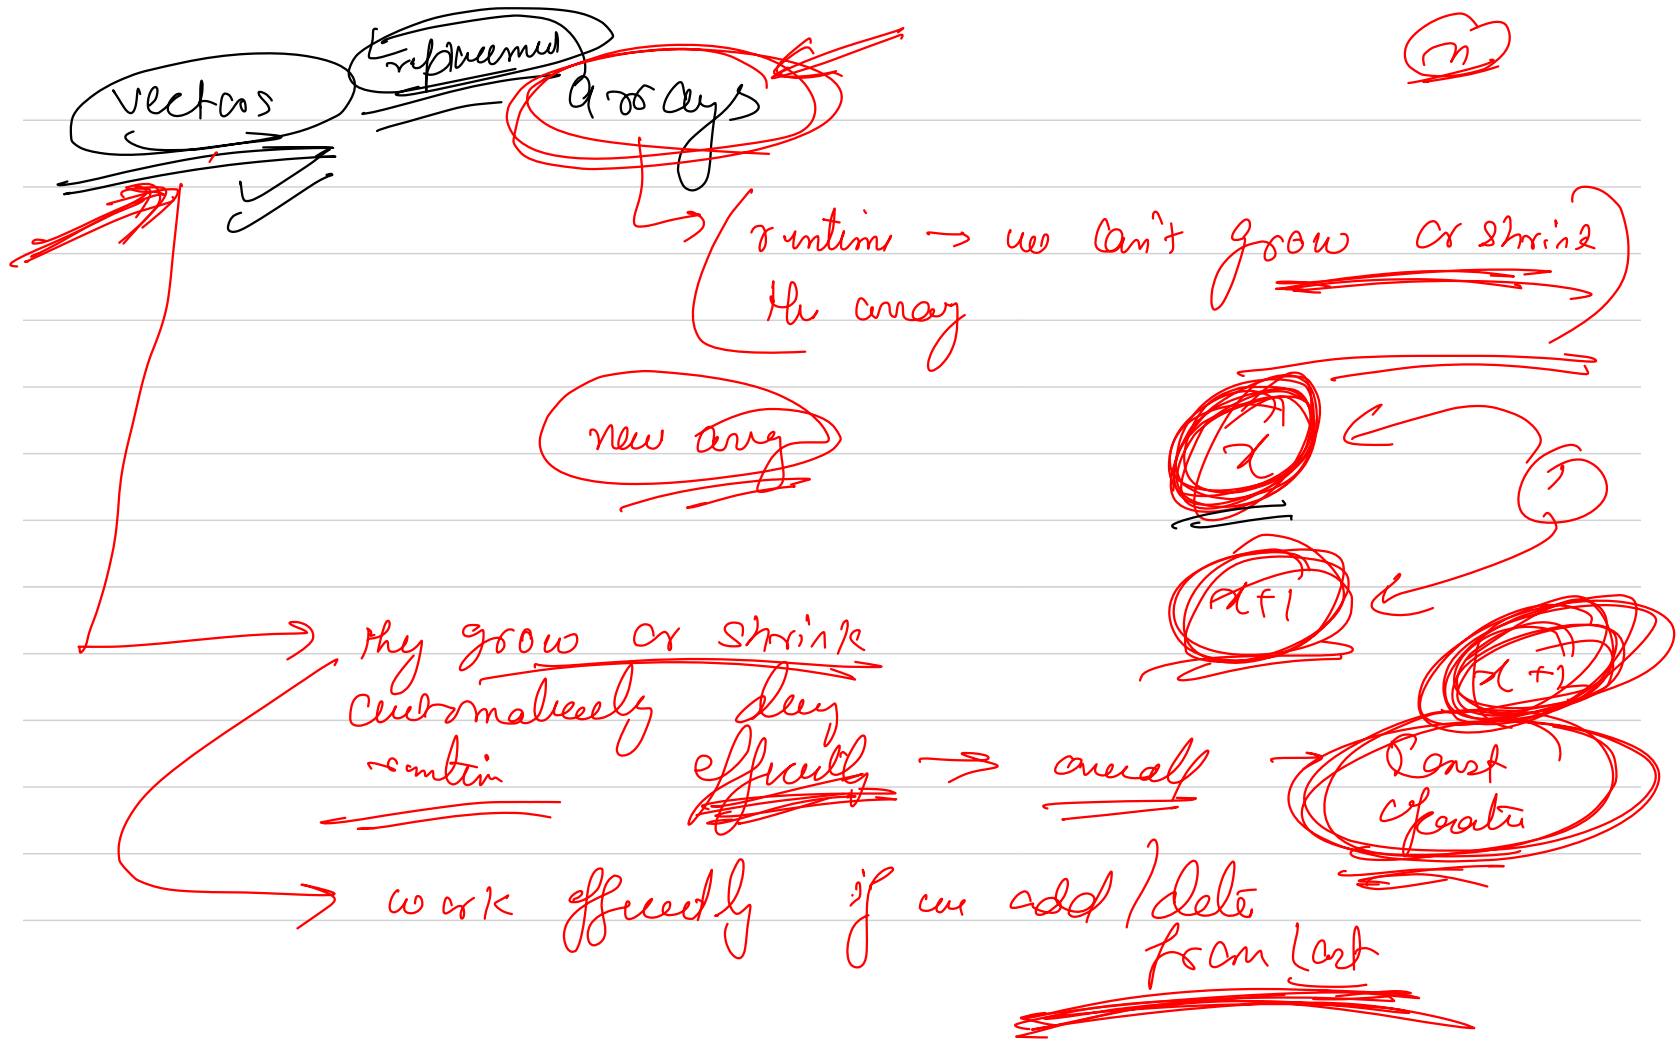 vectors replacement arrays
n
runtime → we can't grow or shrink
the array
new array
x
x+1
they grow or shrink
x+1
automatically
runtime efficiently → overall → Const
operation
work efficiently if we add/delete
from last